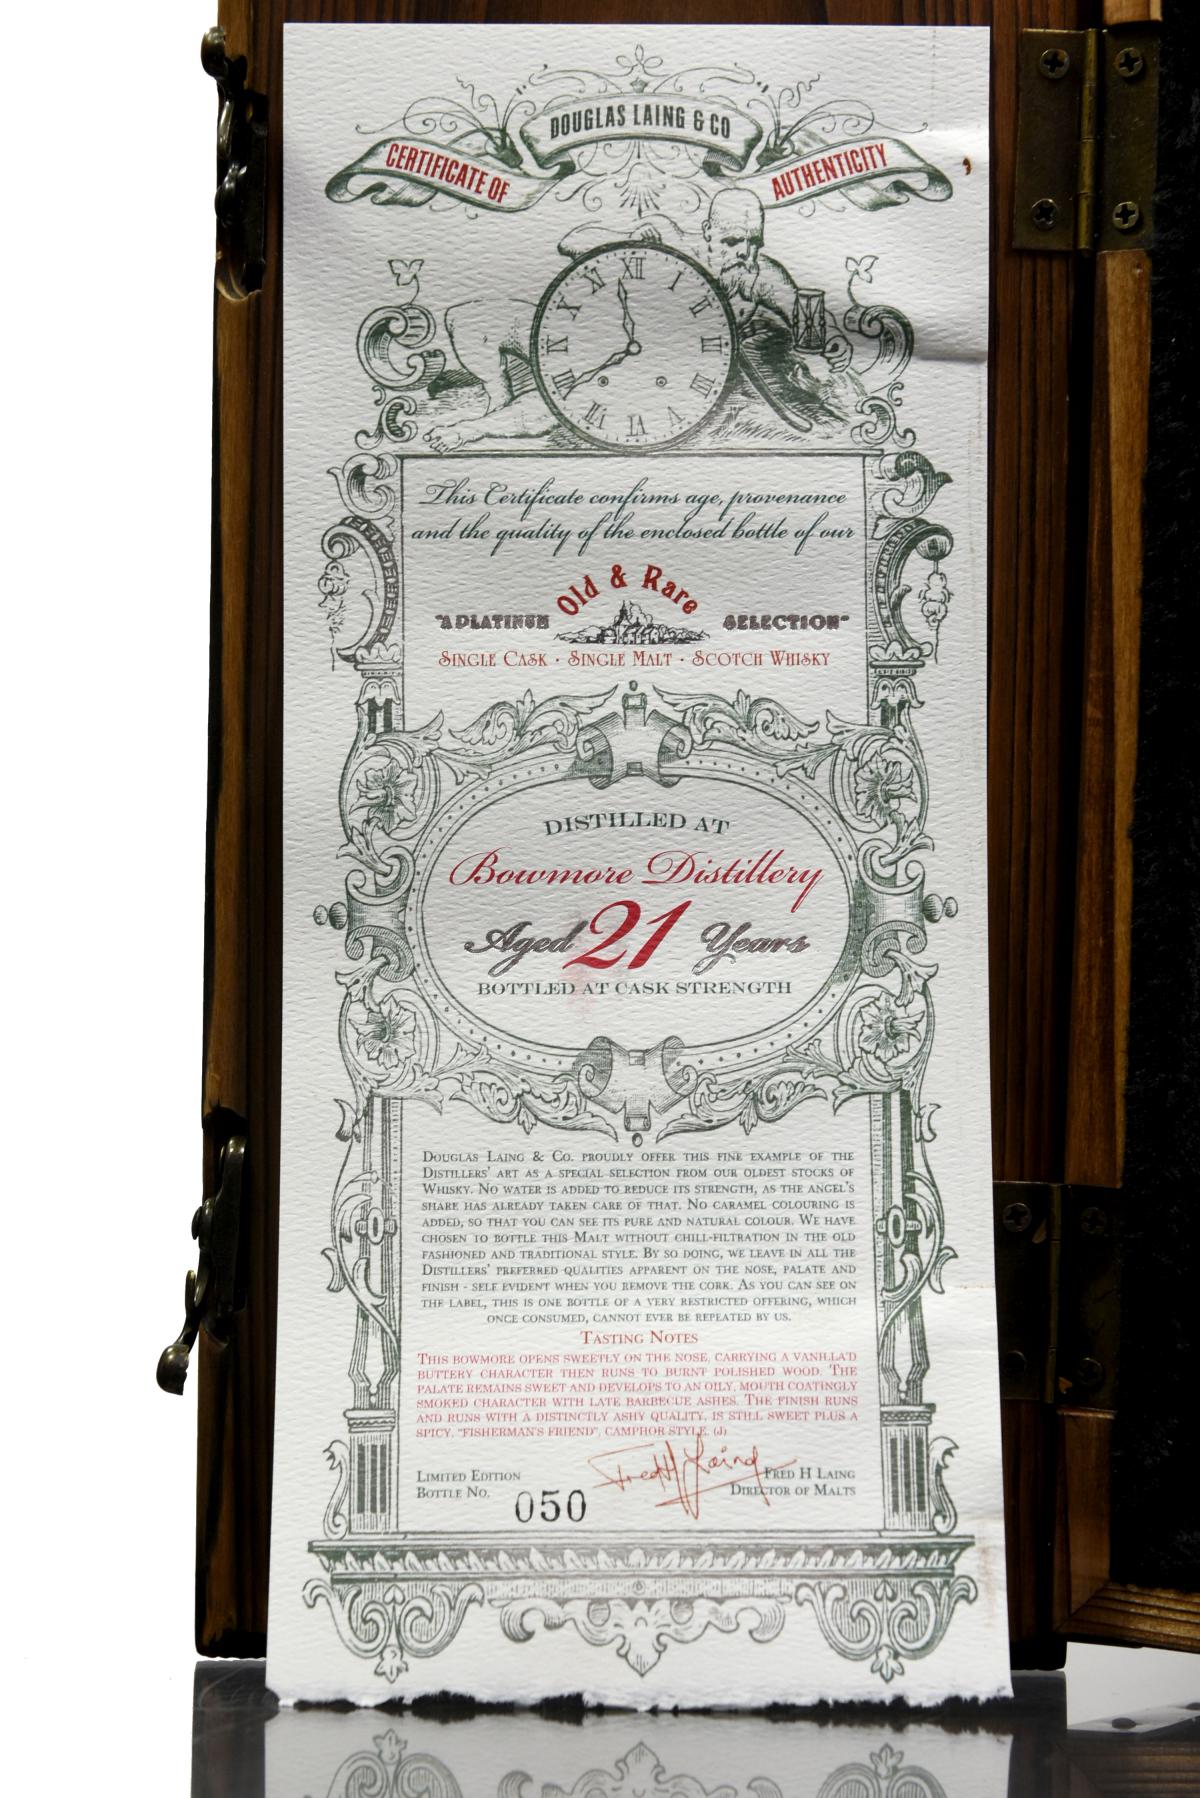 DOUGLAS LAING & CO
CERTIFICATE OF AUTHENTICITY
XII I II III IV V VI VII VIII IX X XI
This Certificate confirms age, provenance
and the quality of the enclosed bottle of our
Old & Rare
"A PLATINUM SELECTION"
SINGLE CASK · SINGLE MALT · SCOTCH WHISKY
DISTILLED AT
Bowmore Distillery
Aged 21 Years
BOTTLED AT CASK STRENGTH
DOUGLAS LAING & CO. PROUDLY OFFER THIS FINE EXAMPLE OF THE
DISTILLERS' ART AS A SPECIAL SELECTION FROM OUR OLDEST STOCKS OF
WHISKY. NO WATER IS ADDED TO REDUCE ITS STRENGTH, AS THE ANGEL'S
SHARE HAS ALREADY TAKEN CARE OF THAT. NO CARAMEL COLOURING IS
ADDED, SO THAT YOU CAN SEE ITS PURE AND NATURAL COLOUR. WE HAVE
CHOSEN TO BOTTLE THIS MALT WITHOUT CHILL-FILTRATION IN THE OLD
FASHIONED AND TRADITIONAL STYLE. BY SO DOING, WE LEAVE IN ALL THE
DISTILLERS' PREFERRED QUALITIES APPARENT ON THE NOSE, PALATE AND
FINISH - SELF EVIDENT WHEN YOU REMOVE THE CORK. AS YOU CAN SEE ON
THE LABEL, THIS IS ONE BOTTLE OF A VERY RESTRICTED OFFERING, WHICH
ONCE CONSUMED, CANNOT EVER BE REPEATED BY US.
TASTING NOTES
THIS BOWMORE OPENS SWEETLY ON THE NOSE, CARRYING A VANILLA'D
BUTTERY CHARACTER THEN RUNS TO BURNT POLISHED WOOD. THE
PALATE REMAINS SWEET AND DEVELOPS TO AN OILY, MOUTH COATINGLY
SMOKED CHARACTER WITH LATE BARBECUE ASHES. THE FINISH RUNS
AND RUNS WITH A DISTINCTLY ASHY QUALITY, IS STILL SWEET PLUS A
SPICY, "FISHERMAN'S FRIEND", CAMPHOR STYLE. (J)
Fred H Laing
LIMITED EDITION
BOTTLE NO. 050
FRED H LAING
DIRECTOR OF MALTS